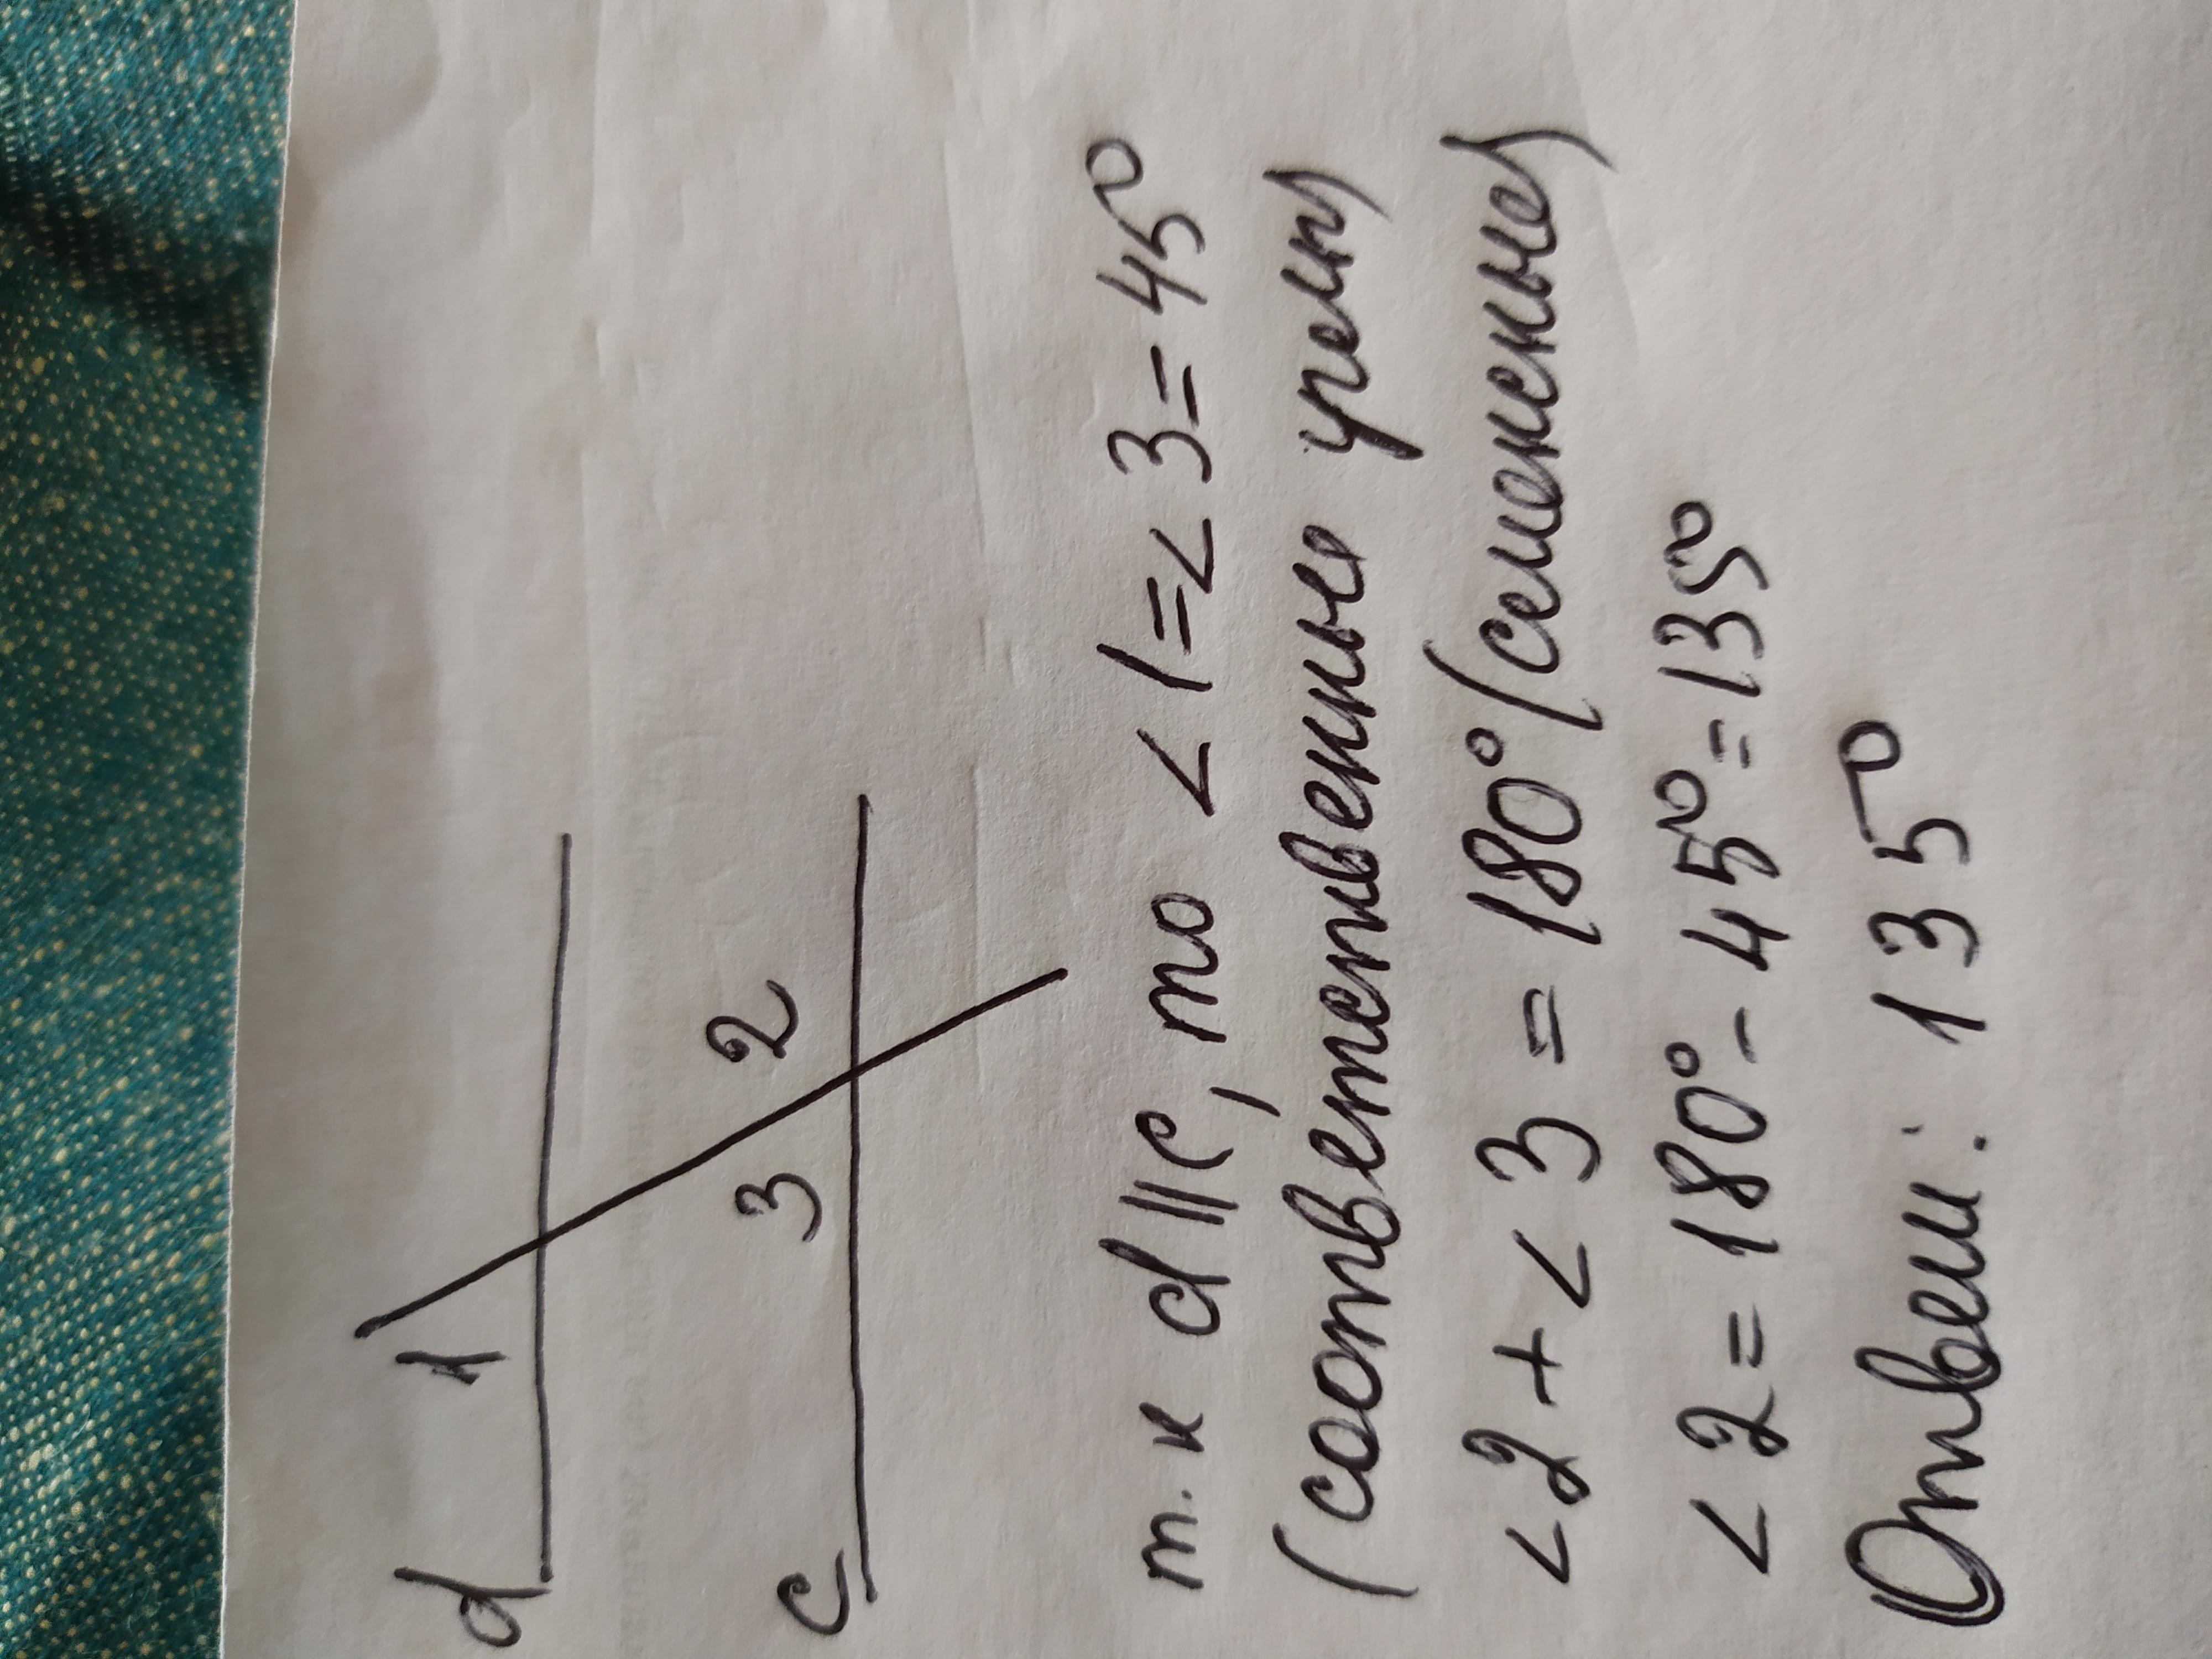 d 1
3 2
c
т.к d||c, то <1=<3=45°
(соответственные углы)
<2+<3=180° (смежные)
<2=180°-45°=135°
Ответ: 135°